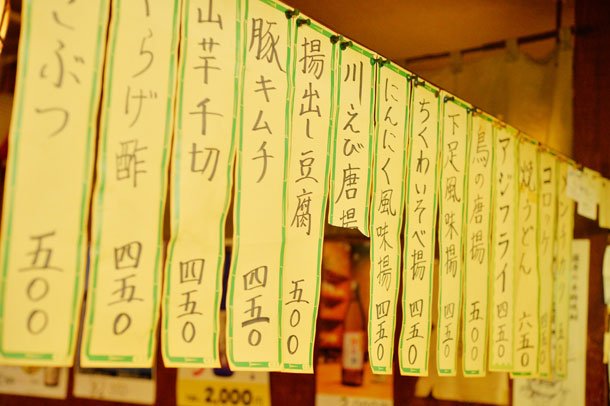 こぶつ 五〇〇
らげ酢 四五〇
山芋千切 四五〇
豚キムチ 四五〇
揚出し豆腐 五〇〇
川えび唐揚
にんにく風味揚 四五〇
ちくわいそべ揚 四五〇
下足風味揚 四五〇
鳥の唐揚 五〇〇
アジフライ 四五〇
焼うどん 六五〇
コロッケ 四五〇
2,000